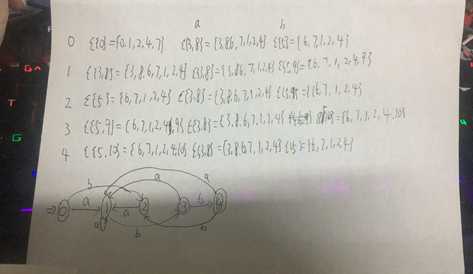 a b
0 ε{0} = {0,1,2,4,7} ε{3,8} = {3,8,6,7,1,2,4} ε{5} = {6,7,1,2,4}
1 ε{3,8} = {3,8,6,7,1,2,4} ε{3,8} = {3,8,6,7,1,2,4} ε{5,9} = {6,7,1,2,4,9}
2 ε{5} = {6,7,1,2,4} ε{3,8} = {3,8,6,7,1,2,4} ε{5} = {6,7,1,2,4}
3 ε{5,9} = {6,7,1,2,4,9} ε{3,8} = {3,8,6,7,1,2,4} = {6,7,1,2,4,10}
4 ε{5,10} = {6,7,1,2,4,10} ε{3,8} = {3,8,6,7,1,2,4} ε{5} = {6,7,1,2,4}
b a a
a a b
a b b